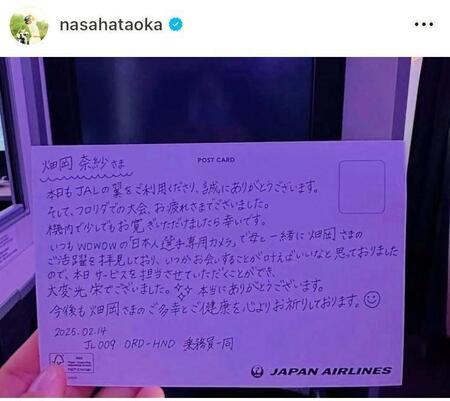 nasahataoka
畑岡 奈紗さま
POST CARD
本日もJALの翼をご利用くださり、誠にありがとうございます。
そして、フロリダでの大会、お疲れさまでございました。
機内で少しでもお寛ぎいただけましたら幸いです。
いつもWOWOWの「日本人選手専用カメラ」で母と一緒に畑岡さまの
ご活躍を拝見しており、いつかお会いすることが叶えばいいなと思っておりました
ので、本日サービスを担当させていただくことができ、
大変光栄でございました。本当にありがとうございます。
今後も畑岡さまのご多幸とご健康を心よりお祈りしております。
2025.02.14
JL009 ORD-HND 乗務員一同
FSC
JAPAN AIRLINES